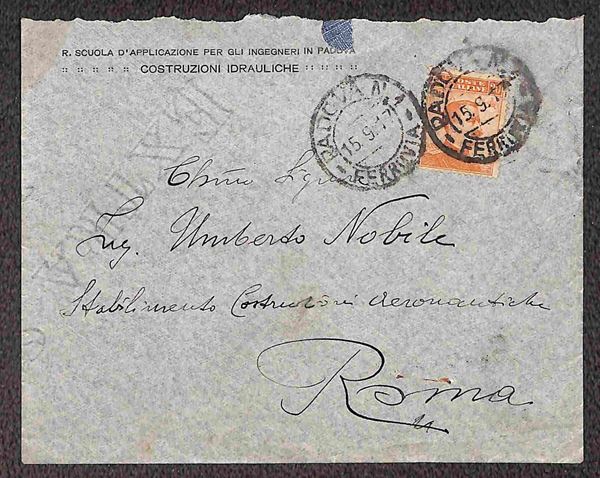 R. SCUOLA D'APPLICAZIONE PER GLI INGEGNERI IN PADOVA
COSTRUZIONI IDRAULICHE
PADOVA N.1
15.9.17
FERROVIA
POSTE ITALIANE
PADOVA N.1
15.9.17
FERROVIA
Ch̃mo Signore
Ing. Umberto Nobile
Stabilimento Costruzioni Aeronautiche
Roma